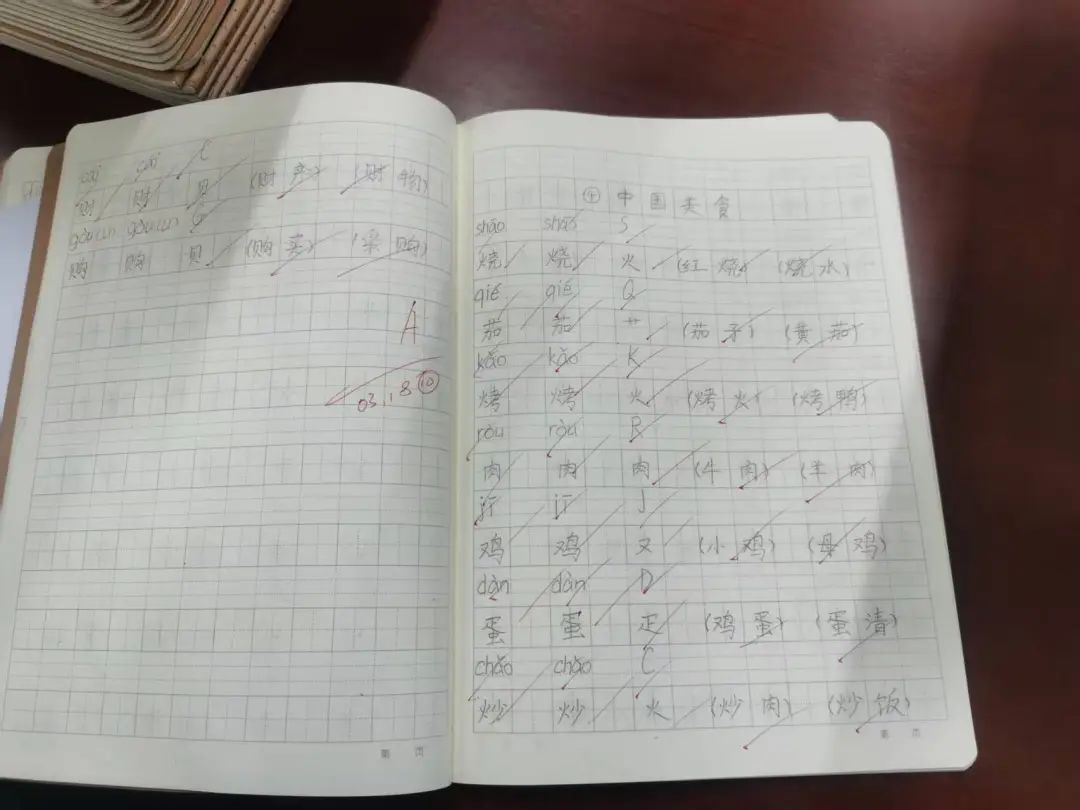 cái cái C
财 财 贝 (财产) (财物)
gòu(u) gòu(u) G
购 购 贝 (购买) (采购)
A
03.18 ⑩
第 页
④ 中国美食
shāo shāo S
烧 烧 火 (红烧) (烧水)
qié qié Q
茄 茄 艹 (茄矛) (黄茄)
kǎo kǎo K
烤 烤 火 (烤火) (烤鸭)
ròu ròu R
肉 肉 肉 (牛肉) (羊肉)
jī jī J
鸡 鸡 又 (小鸡) (母鸡)
dàn dàn D
蛋 蛋 疋 (鸡蛋) (蛋清)
chǎo chǎo C
炒 炒 火 (炒肉) (炒饭)
第 页